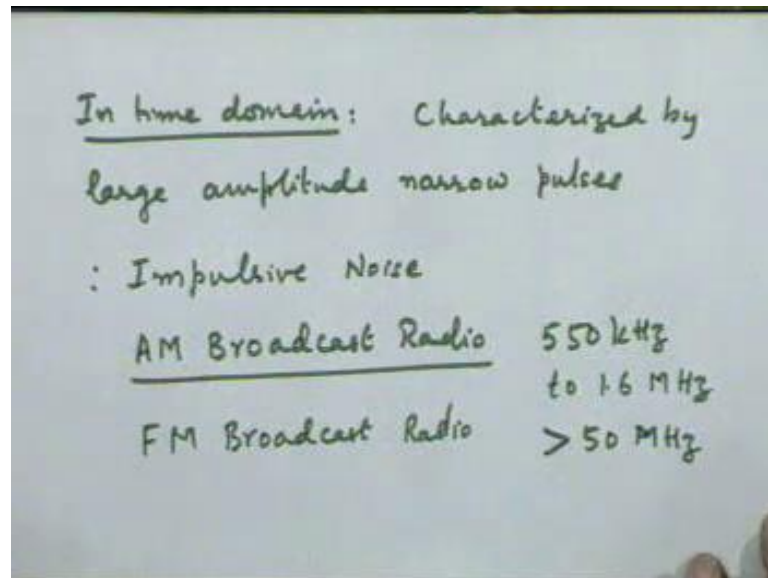 In time domain: Characterized by
large amplitude narrow pulses
: Impulsive Noise
AM Broadcast Radio 550 kHz
to 1.6 MHz
FM Broadcast Radio > 50 MHz